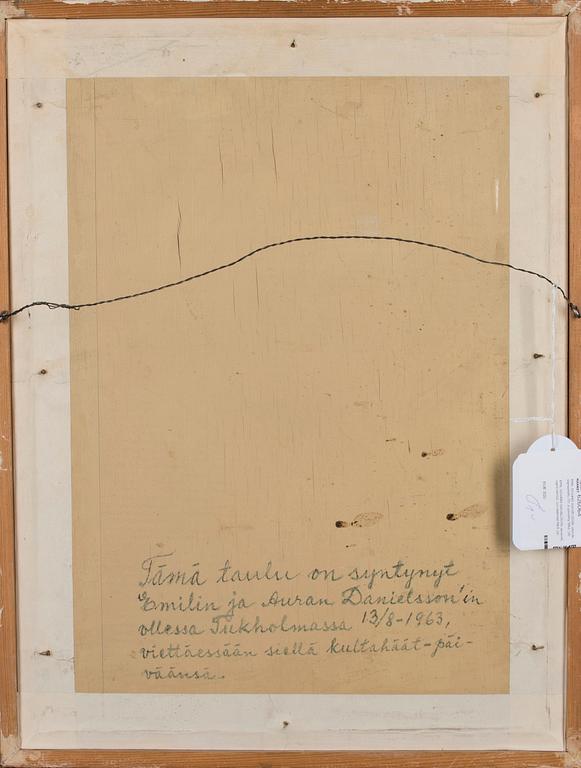 Tämä taulu on syntynyt
Emilin ja Auran Danielsson'in
ollessa Tukholmassa 13/8-1963,
viettäessään siellä kultahäät-päi-
väänsä.